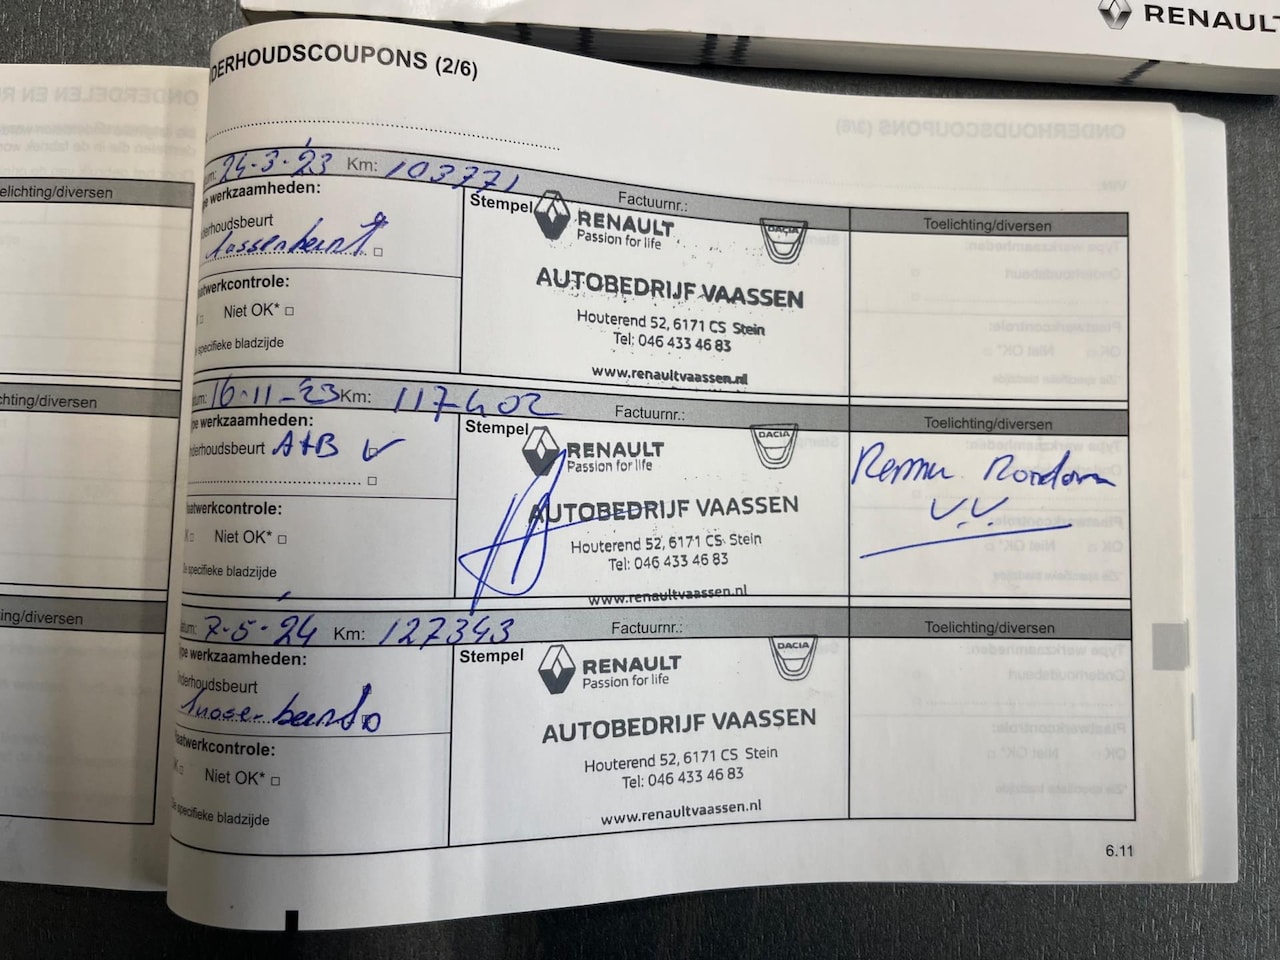 RENAULT
DERHOUDSCOUPONS (2/6)
24-3-'23 Km: 103771 Factuurnr.:
elichting/diversen
pe werkzaamheden:
Stempel
RENAULT
Passion for life
DACIA
Toelichting/diversen
derhoudsbeurt
Tussenbeurt
AUTOBEDRIJF VAASSEN
atwerkcontrole:
Niet OK*
Houterend 52, 6171 CS Stein
Tel: 046 433 46 83
specifieke bladzijde
www.renaultvaassen.nl
16-11-'23 Km: 117402 Factuurnr.:
chting/diversen
pe werkzaamheden:
Stempel
RENAULT
Passion for life
DACIA
Toelichting/diversen
derhoudsbeurt A+B
Remmen Rondom
V.V.
AUTOBEDRIJF VAASSEN
aatwerkcontrole:
Niet OK*
Houterend 52, 6171 CS Stein
Tel: 046 433 46 83
specifieke bladzijde
www.renaultvaassen.nl
7-5-'24 Km: 127343 Factuurnr.:
ing/diversen
pe werkzaamheden:
Stempel
RENAULT
Passion for life
DACIA
Toelichting/diversen
nderhoudsbeurt
Tussenbeurt
AUTOBEDRIJF VAASSEN
aatwerkcontrole:
Niet OK*
Houterend 52, 6171 CS Stein
Tel: 046 433 46 83
specifieke bladzijde
www.renaultvaassen.nl
6.11